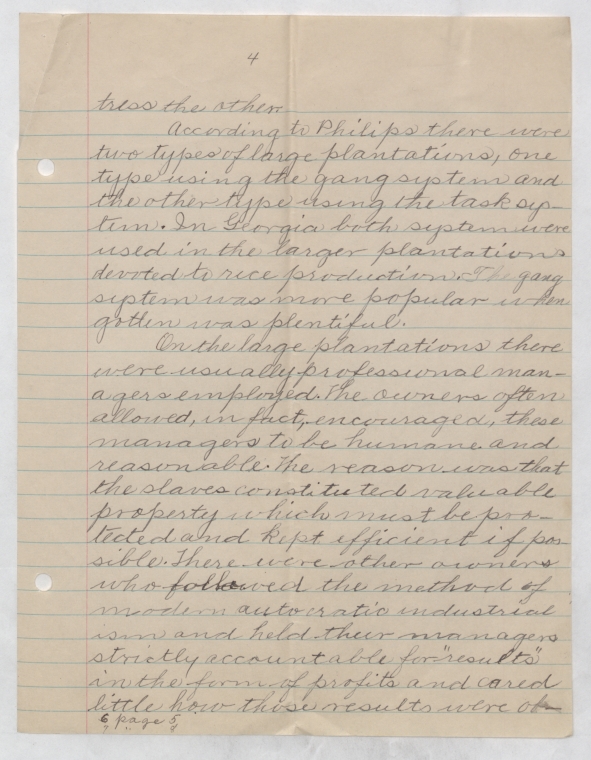 4
tress the other.
According to Philips there were
two types of large plantations, one
type using the gang system and
the other type using the task sys-
tem. In Georgia both system were
used in the larger plantations
devoted to rice production. The gang
system was more popular when
gotten was plentiful.
On the large plantations there
were usually professional man-
agers employed. The owners often
allowed, in fact, encouraged, these
managers to be humane and
reasonable. The reason was that
the slaves constituted valuable
property which must be pro-
tected and kept efficient if pos-
sible. There were other owners
who followed the method of
modern autocratic industrial
ism and held their managers
strictly accountable for "results"
in the form of profits and cared
little how those results were ob-
6 page 5